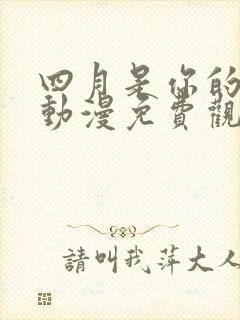 四月是你的
動漫免費觀
請叫我萍大人